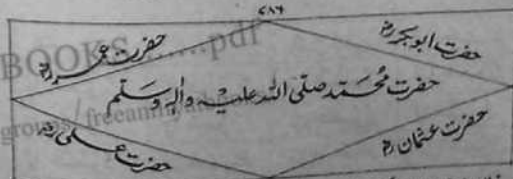 ۷۸۶
حضرت ابوبکرؓ
حضرت عمرؓ
حضرت مُحَمَّد صلی اللہ علیہ وآلہ وسلم
حضرت عثمانؓ
حضرت علیؓ
BOOKS.......pdf
groups/freeamliyat